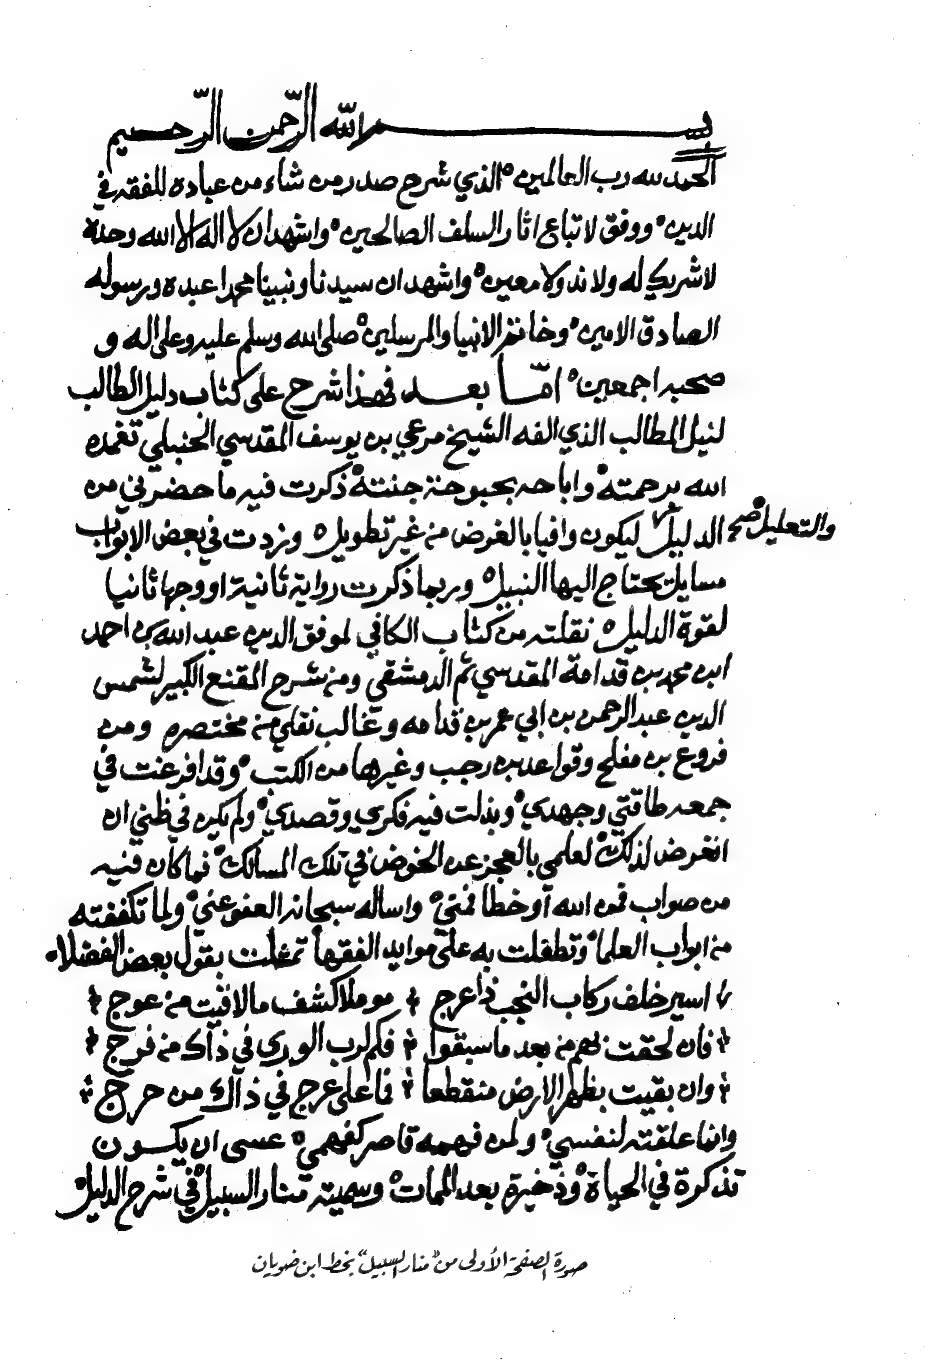 بسم الله الرحمن الرحيم
الحمد لله رب العالمين الذي شرح صدر من شاء من عباده للفقه في
الدين ووفق لاتباع اثار السلف الصالحين واشهد ان لا اله الا الله وحده
لا شريك له ولا ند ولا معين واشهد ان سيدنا ونبينا محمدا عبده ورسوله
الصادق الامين وخاتم الانبيا والمرسلين صلى الله وسلم عليه وعلى اله و
صحبه اجمعين امّا بعد فهذا شرح على كتاب دليل الطالب
لنيل المطالب الذي الفه الشيخ مرعي بن يوسف المقدسي الحنبلي تغمده
الله برحمته واباحه بحبوحة جنته ذكرت فيه ما حضرني من
الدليل والتعليل صح ليكون وافيا بالغرض من غير تطويل وزدت في بعض الابواب
مسايل يحتاج اليها النبيل وربما ذكرت رواية ثانية او وجها ثانيا
لقوة الدليل نقلته من كتاب الكافي لموفق الدين عبد الله بن احمد
ابن محمد بن قدامة المقدسي ثم الدمشقي ومن شرح المقنع الكبير لشمس
الدين عبد الرحمن بن ابي عمر بن قدامه وغالب نقلي من مختصره ومن
فروع بن مفلح وقواعد بن رجب وغيرها من الكتب وقد افرغت في
جمعه طاقتي وجهدي وبذلت فيه فكري وقصدي ولم يكن في ظني ان
اتعرض لذلك لعلمي بالعجز عن الخوض في تلك المسالك فما كان فيه
من صواب فمن الله أو خطا فمني واساله سبحانه العفو عني ولما تكففته
من ابواب العلما وتطفلت به على موايد الفقها تمثلت بقول بعض الفضلاء
اسير خلف ركاب النجب ذا عرج موملا كشف ما لاقيت من عوج
فان لحقت بهم من بعد ما سبقوا فكم لرب الورى في ذاك من فرج
وان بقيت بظهر الارض منقطعا فما على عرج في ذاك من حرج
وانما علقته لنفسي ولمن فهمه قاصر كفهمي عسى ان يكون
تذكرة في الحياة وذخيرة بعد الممات وسميته منار السبيل في شرح الدليل
صورة الصفحة الأولى من "منار السبيل" بخط ابن ضويان